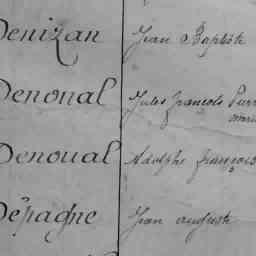 Denizan Jean Baptiste
Denonal Jules françois Pierre
marie
Denoual Adolphe françois
Dépagne Jean auguste